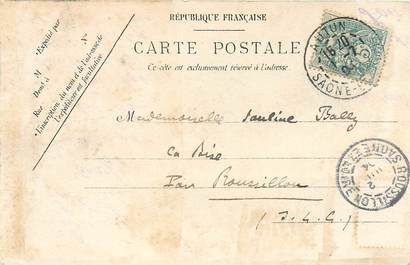 RÉPUBLIQUE FRANÇAISE
CARTE POSTALE
Ce côté est exclusivement réservé à l'adresse.
Nº
Expédié par
M
Demt à
Rue
L'inscription du nom et de l'adresse de l'expéditeur est facultative
AUTUN
SAONE-
Mademoiselle Pauline
La
Par Roussillon
(S. & L.)
ROUSSILLON EN MORVAN
SAONE-ET-LOIRE